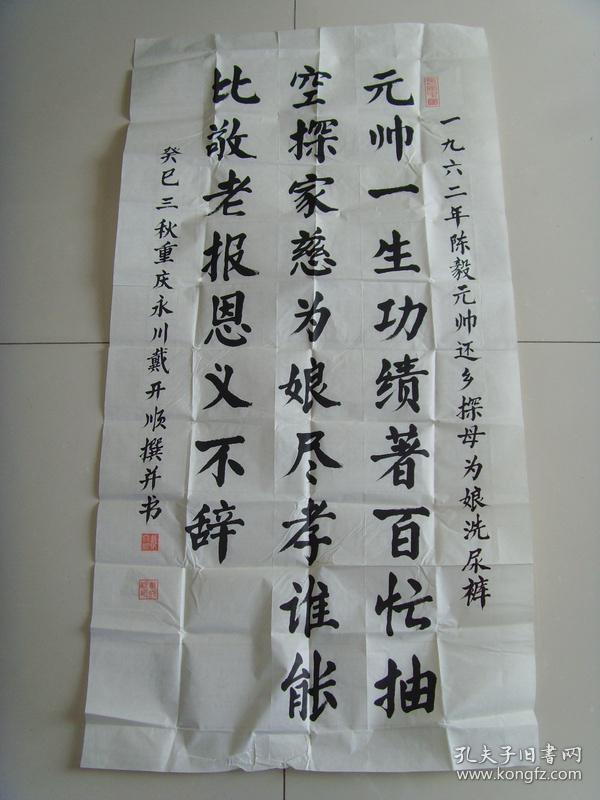 一九六二年陈毅元帅还乡探母为娘洗尿裤
元帅一生功绩著百忙抽
空探家慈为娘尽孝谁能
比敬老报恩义不辞
癸巳三秋重庆永川戴开顺撰并书
孔夫子旧书网
www.kongfz.com